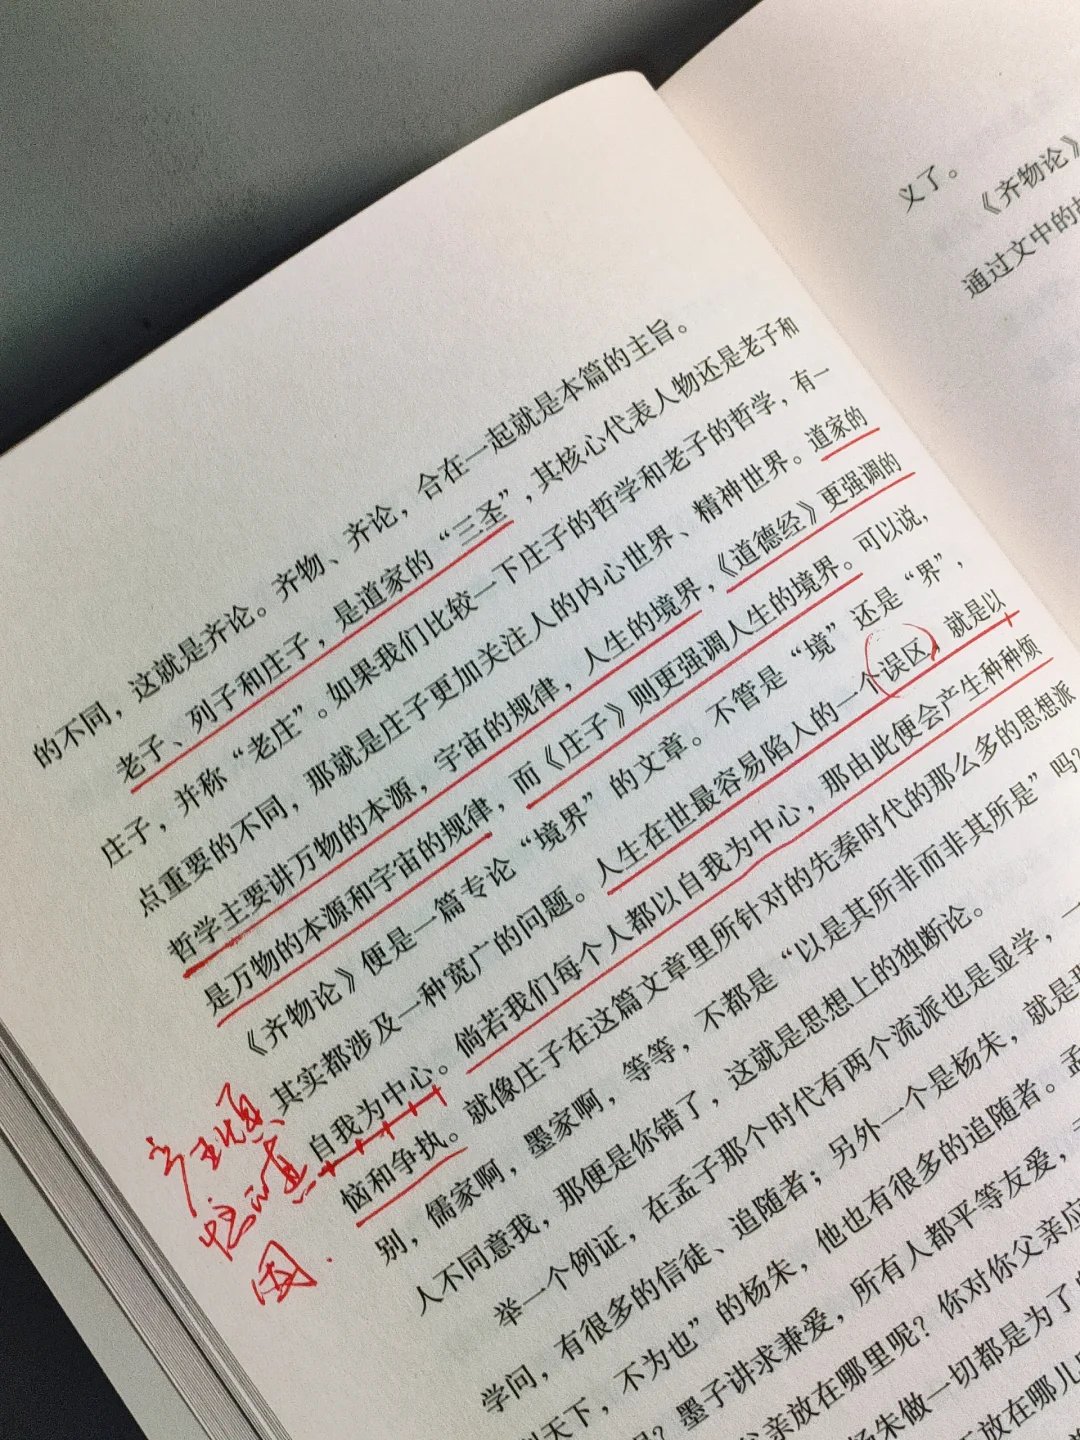 的不同，这就是齐论。齐物、齐论，合在一起就是本篇的主旨。
老子、列子和庄子，是道家的“三圣”，其核心代表人物还是老子和
庄子，并称“老庄”。如果我们比较一下庄子的哲学和老子的哲学，有一
点重要的不同，那就是庄子更加关注人的内心世界、精神世界。道家的
哲学主要讲万物的本源，宇宙的规律，人生的境界，《道德经》更强调的
是万物的本源和宇宙的规律，而《庄子》则更强调人生的境界。可以说，
《齐物论》便是一篇专论“境界”的文章。不管是“境”还是“界”，
其实都涉及一种宽广的问题。人生在世最容易陷入的一个误区，就是以
自我为中心。倘若我们每个人都以自我为中心，那由此便会产生种种烦
恼和争执。就像庄子在这篇文章里所针对的先秦时代的那么多的思想派
别，儒家啊，墨家啊，等等，不都是“以是其所非而非其所是”吗？
人不同意我，那便是你错了，这就是思想上的独断论。
举一个例证，在孟子那个时代有两个流派也是显学，一
学问，有很多的信徒、追随者；另外一个是杨朱，就是
天下，不为也”的杨朱，他也有很多的追随者。孟
墨子讲求兼爱，所有人都平等友爱，
父亲放在哪里呢？你对你父亲应
杨朱做一切都是为了
放在哪儿
义了。
《齐物论》
通过文中的
因